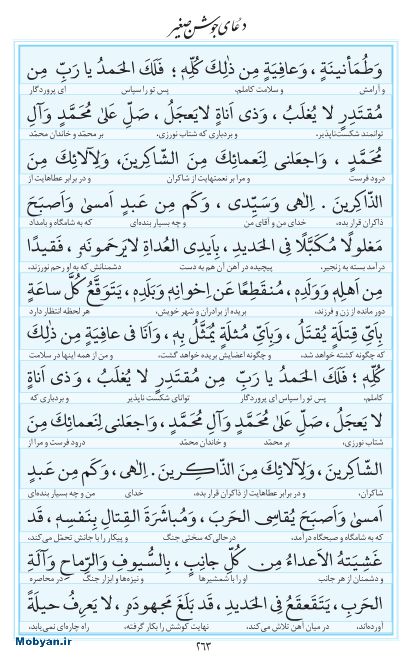 دعای جوشن صغیر
وَطُمَأنینَةٍ ، وَعافِیَةٍ مِن ذٰلِكَ كُلِّهٖ ؛ فَلَكَ الحَمدُ یا رَبِّ مِن
و آرامش و سلامت کاملم، پس تو را سپاس ای پروردگار
مُقتَدِرٍ لا یُغلَبُ ، وَذی اَناةٍ لایَعجَلُ ، صَلِّ عَلیٰ مُحَمَّدٍ وَآلِ
توانمند شکست‌ناپذیر، و بردباری که شتاب نورزی، بر محمّد و خاندان محمّد
مُحَمَّدٍ ، وَاجعَلنی لِنَعمائِكَ مِنَ الشّاكِرینَ، وَلِآلائِكَ مِنَ
درود فرست و مرا بر نعمتهایت از شاکران و در برابر عطاهایت از
الذّاكِرینَ . اِلٰهی وَسَیِّدی ، وَكَم مِن عَبدٍ اَمسیٰ وَاَصبَحَ
ذاکران قرار بده، خدای من و آقای من و چه بسیار بنده‌ای که به شامگاه و بامداد
مَغلولًا مُكَبَّلًا فِی الحَدیدِ ، بِاَیدِی العُداةِ لایَرحَمونَهٗ ، فَقیدًا
درآمد بسته به زنجیر، پیچیده در آهن آن هم به دست دشمنانش که به او رحم نورزند،
مِن اَهلِهٖ وَوَلَدِهٖ ، مُنقَطِعًا عَن اِخوانِهٖ وَبَلَدِهٖ ، یَتَوَقَّعُ كُلَّ ساعَةٍ
دور مانده از زن و فرزند، بریده از برادران و شهر خویش، هر لحظه انتظار دارد
بِاَیِّ قِتلَةٍ یُقتَلُ ، وَبِاَیِّ مُثلَةٍ یُمَثَّلُ بِهٖ ، وَاَنَا فی عافِیَةٍ مِن ذٰلِكَ
که چگونه کشته خواهد شد، و چگونه اعضایش بریده خواهد گشت، و من از همه اینها در سلامت
كُلِّهٖ ؛ فَلَكَ الحَمدُ یا رَبِّ مِن مُقتَدِرٍ لا یُغلَبُ ، وَذی اَناةٍ
کاملم، پس تو را سپاس ای پروردگار توانای شکست ناپذیر و بردباری که
لا یَعجَلُ ، صَلِّ عَلیٰ مُحَمَّدٍ وَآلِ مُحَمَّدٍ ، وَاجعَلنی لِنَعمائِكَ مِنَ
شتاب نورزی، بر محمّد و خاندان محمّد درود فرست و مرا از
الشّاكِرینَ ، وَلِآلائِكَ مِنَ الذّاكِرینَ . اِلٰهی ، وَكَم مِن عَبدٍ
شاکران، و در برابر عطاهایت از ذاکران قرار بده، خدای من و چه بسیار بنده‌ای
اَمسیٰ وَاَصبَحَ یُقاسِی الحَربَ ، وَمُباشَرَةَ القِتالِ بِنَفسِهٖ ، قَد
که به شامگاه و صبحگاه درآمد، درحالی‌که سختی جنگ و پیکار را با جانش تحمّل می‌کند،
غَشِیَتهُ الاَعداءُ مِن كُلِّ جانِبٍ ، بِالسُّیوفِ وَالرِّماحِ وَآلَةِ
و دشمنان از هر جانب او را با شمشیرها و نیزه‌ها و ابزار جنگ در محاصره
الحَربِ ، یَتَقَعقَعُ فِی الحَدیدِ، قَد بَلَغَ مَجهودَهٗ ، لا یَعرِفُ حیلَةً
آورده‌اند، در میان آهن تلاش می‌کند، نهایت کوشش را بکار گرفته، راه چاره‌ای نمی‌یابد،
۲۶۳
Mobyan.ir